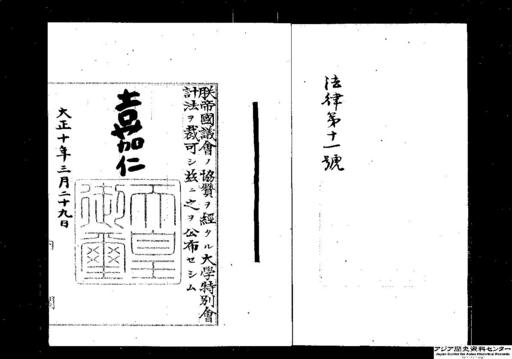 法律第十一號
朕帝國議會ノ協贊ヲ經タル大學特別會
計法ヲ裁可シ玆ニ之ヲ公布セシム
嘉仁
天皇
御璽
大正十年三月二十九日
アジア歴史資料センター
Japan Center for Asian Historical Records